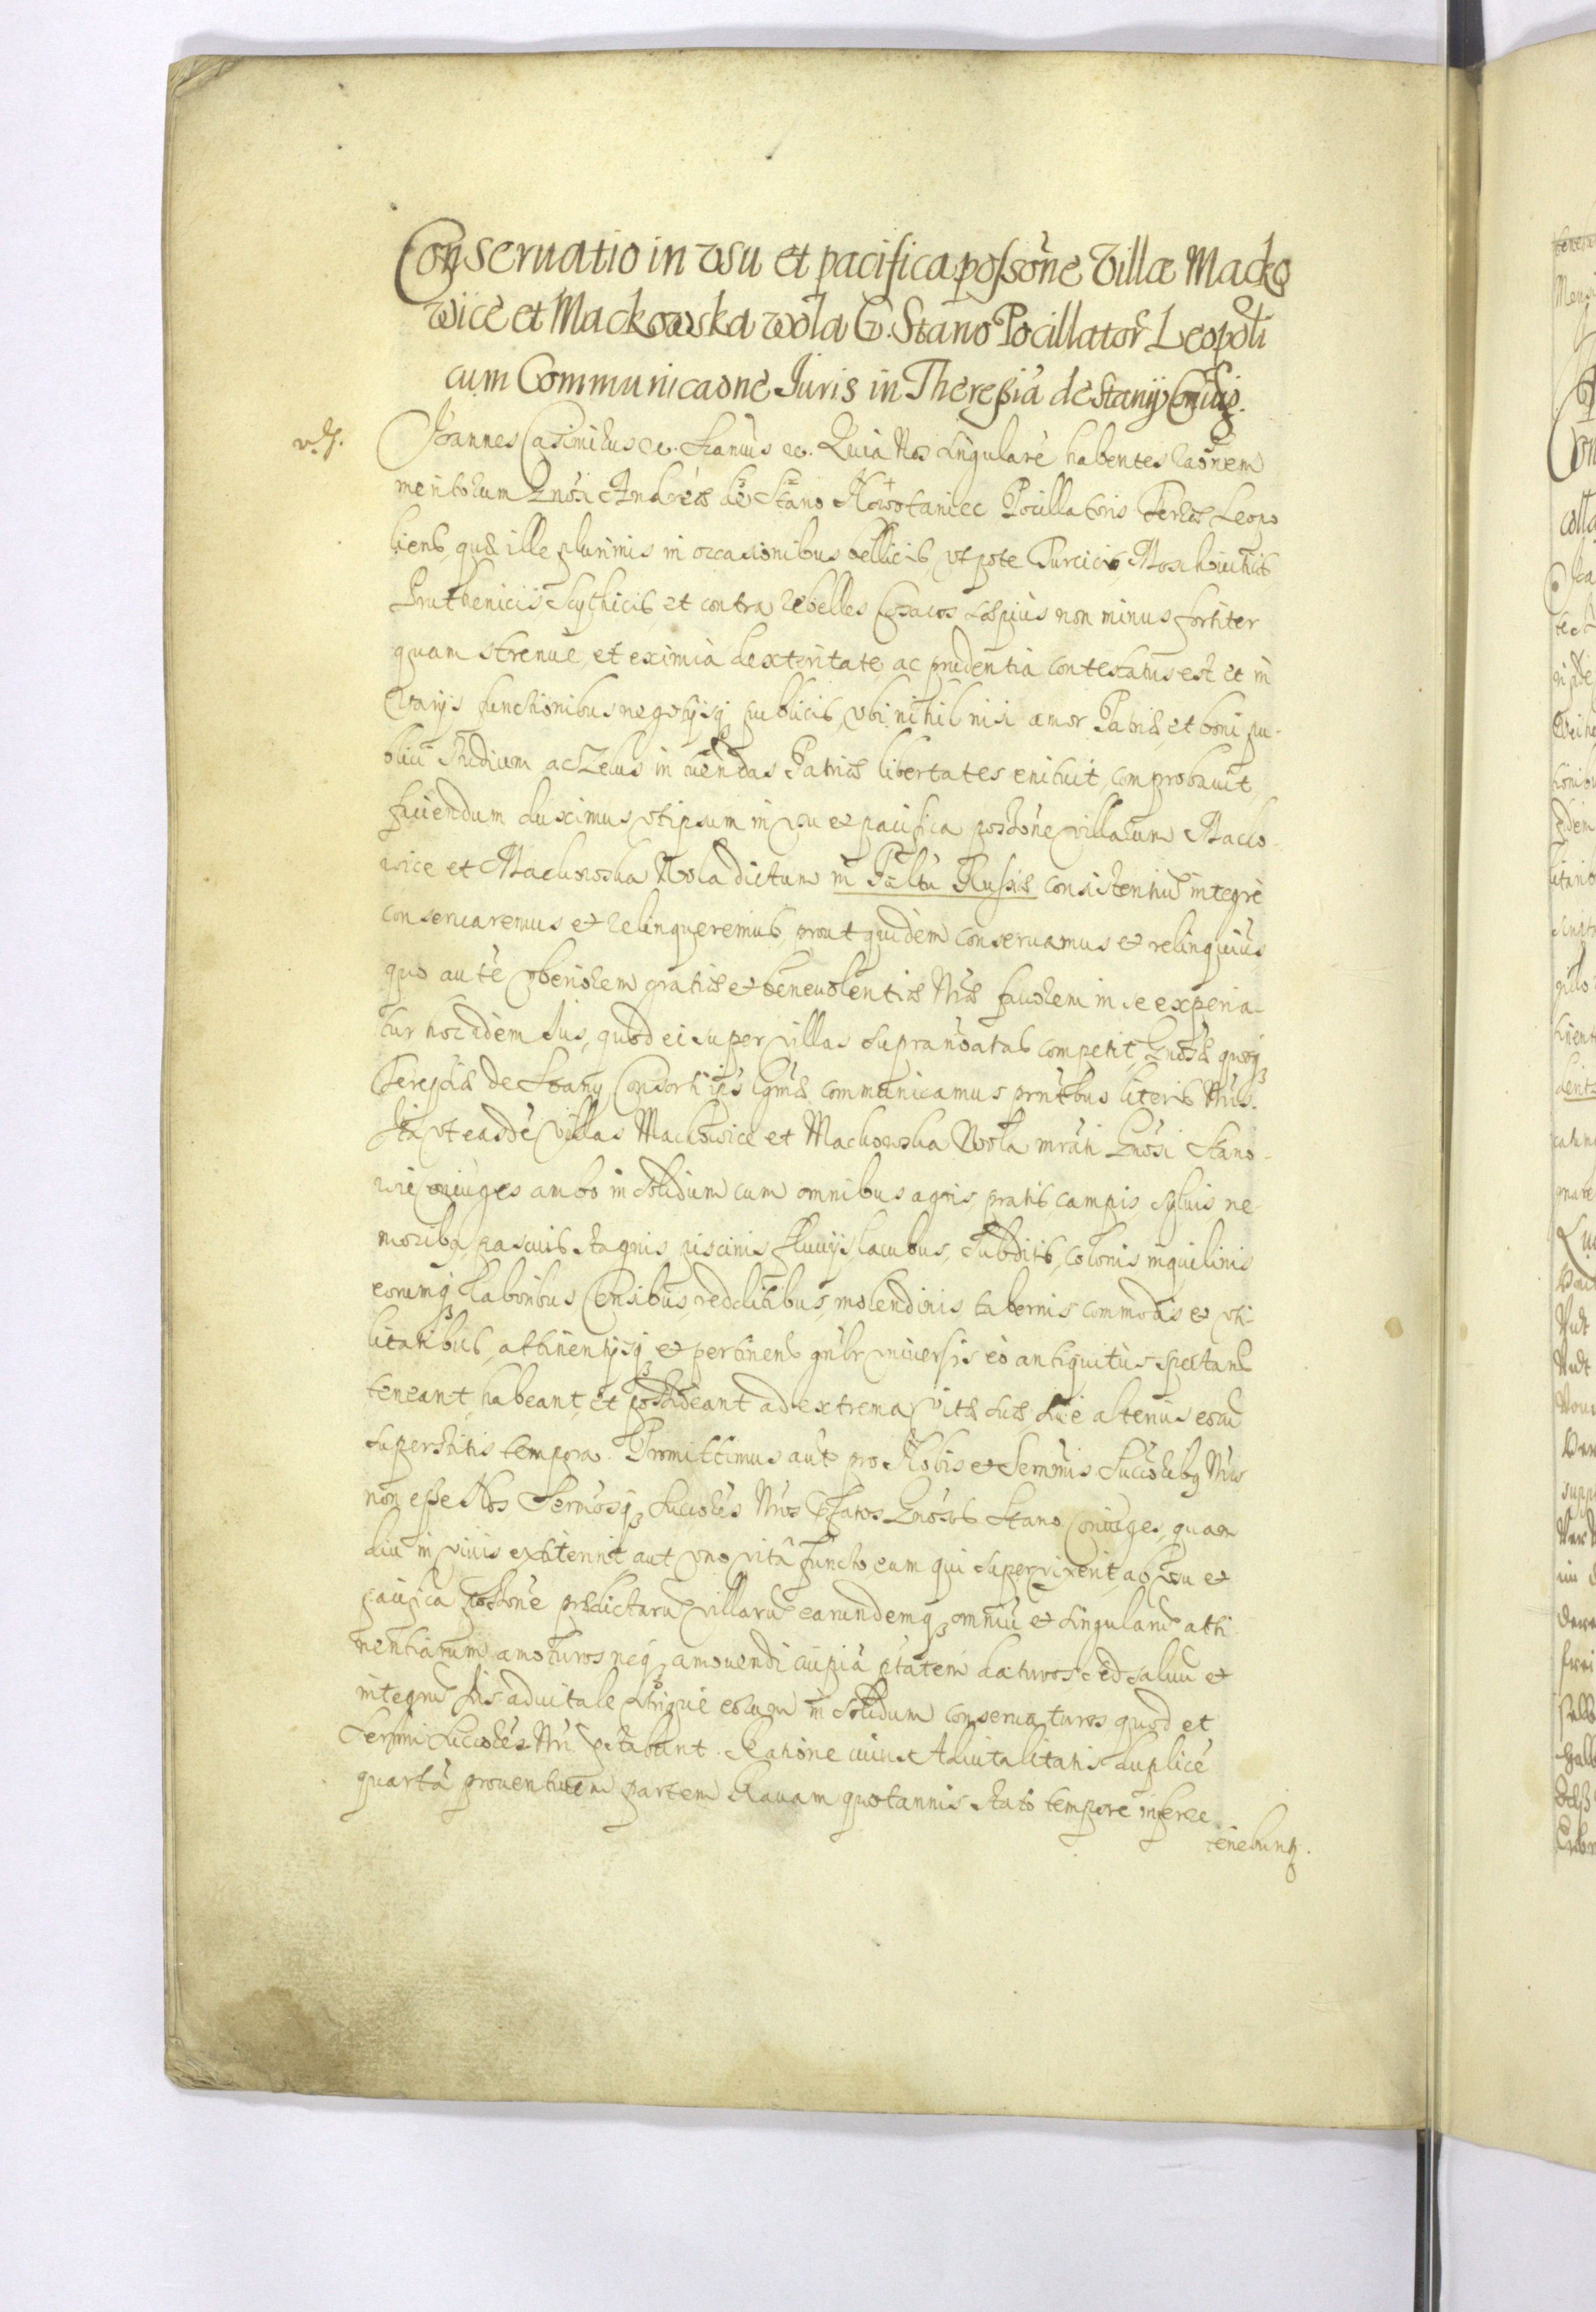 Conseruatio in vsu et pacifica possone Villæ Macko
wice et Mackowska wola G. Stano Pocillator Leopoli
cum Communicaone Iuris in Theresia de Stanij Coniug.
Joannes Casimirus etc. Quia Nos singulare habentes raonem
meritorum Gnosi Andreæ de Stano Nowotaniec Pocillatoris Terræ Leopo
liens, quæ ille plurimis in occasionibus bellicis, vt pote Turcicis Moschouiticis
Pruthenicis Scythicis, et contra rebelles Cosacos sæpius non minus fortiter
quam strenue, et eximia dexteritate, ac prudentia contestatus est et in
varijs functionibus negotijsq publicis, vbi nihil nisi amor Patriæ, et boni pu-
blici studium ac Zelus in tuendas Patriæ libertates enituit, comprobauit,
faciendum duximus, vt ipsum in vsu et pacifica possone villarum Macko-
wice et Mackowska Wola dictarum in Paltu Russiæ consistentiu integre
conseruaremus et relinqueremus, prout quidem conseruamus et relinquius
quo aute vberiorem gratiæ et beneuolentiæ Nræ fauorem in se experia-
tur hoc idem Jus, quod ei super villas supranoatas competit, Gnosæ quoq
Teresiæ de Stany Consorti ips lgmæ communicamus prntibus literis Nris.
Ita vt easde villas Mackowice et Mackowska Wola mrati Gnosi Stano-
wie coniuges ambo in solidum cum omnibus agris, pratis, campis, syluis ne
moribq, pascuis stagnis, piscinis fluuijs, lacubus, subditis, colonis inquilinis
eorumq laboribus Censibus, redditibus, molendinis tabernis commodis et vti-
litatibus, attinentijsq et pertinens gnlr vniuersis eo antiquitus spectans
teneant, habeant, et possideant ad extrema vitæ suæ, siue alterius eoru
superstitis tempora. Promittimus aut pro Nobis et Serenmis Succoribq Nris
non esse Nos Sermosq Succores Nros pfatos Gnosos Stano Coniuges, quam
diu in viuis extiterint aut vno vita functo eum qui superuixerit, ab vsu et
pacifica possone prædictaru villaru earundemq omniu et singularu atti
nentiarum amoturos neq amouendi cuipia ptatem daturos, sed saluu et
integru Jus aduitale vtriqué eorum in solidum conseruaturos quod et
Sermi Succores Nri pstabunt. Ratione cuius Aduitalitatis duplice
quarta prouentuum partem Rauam quotannis stato tempore inferre
tenebunq.